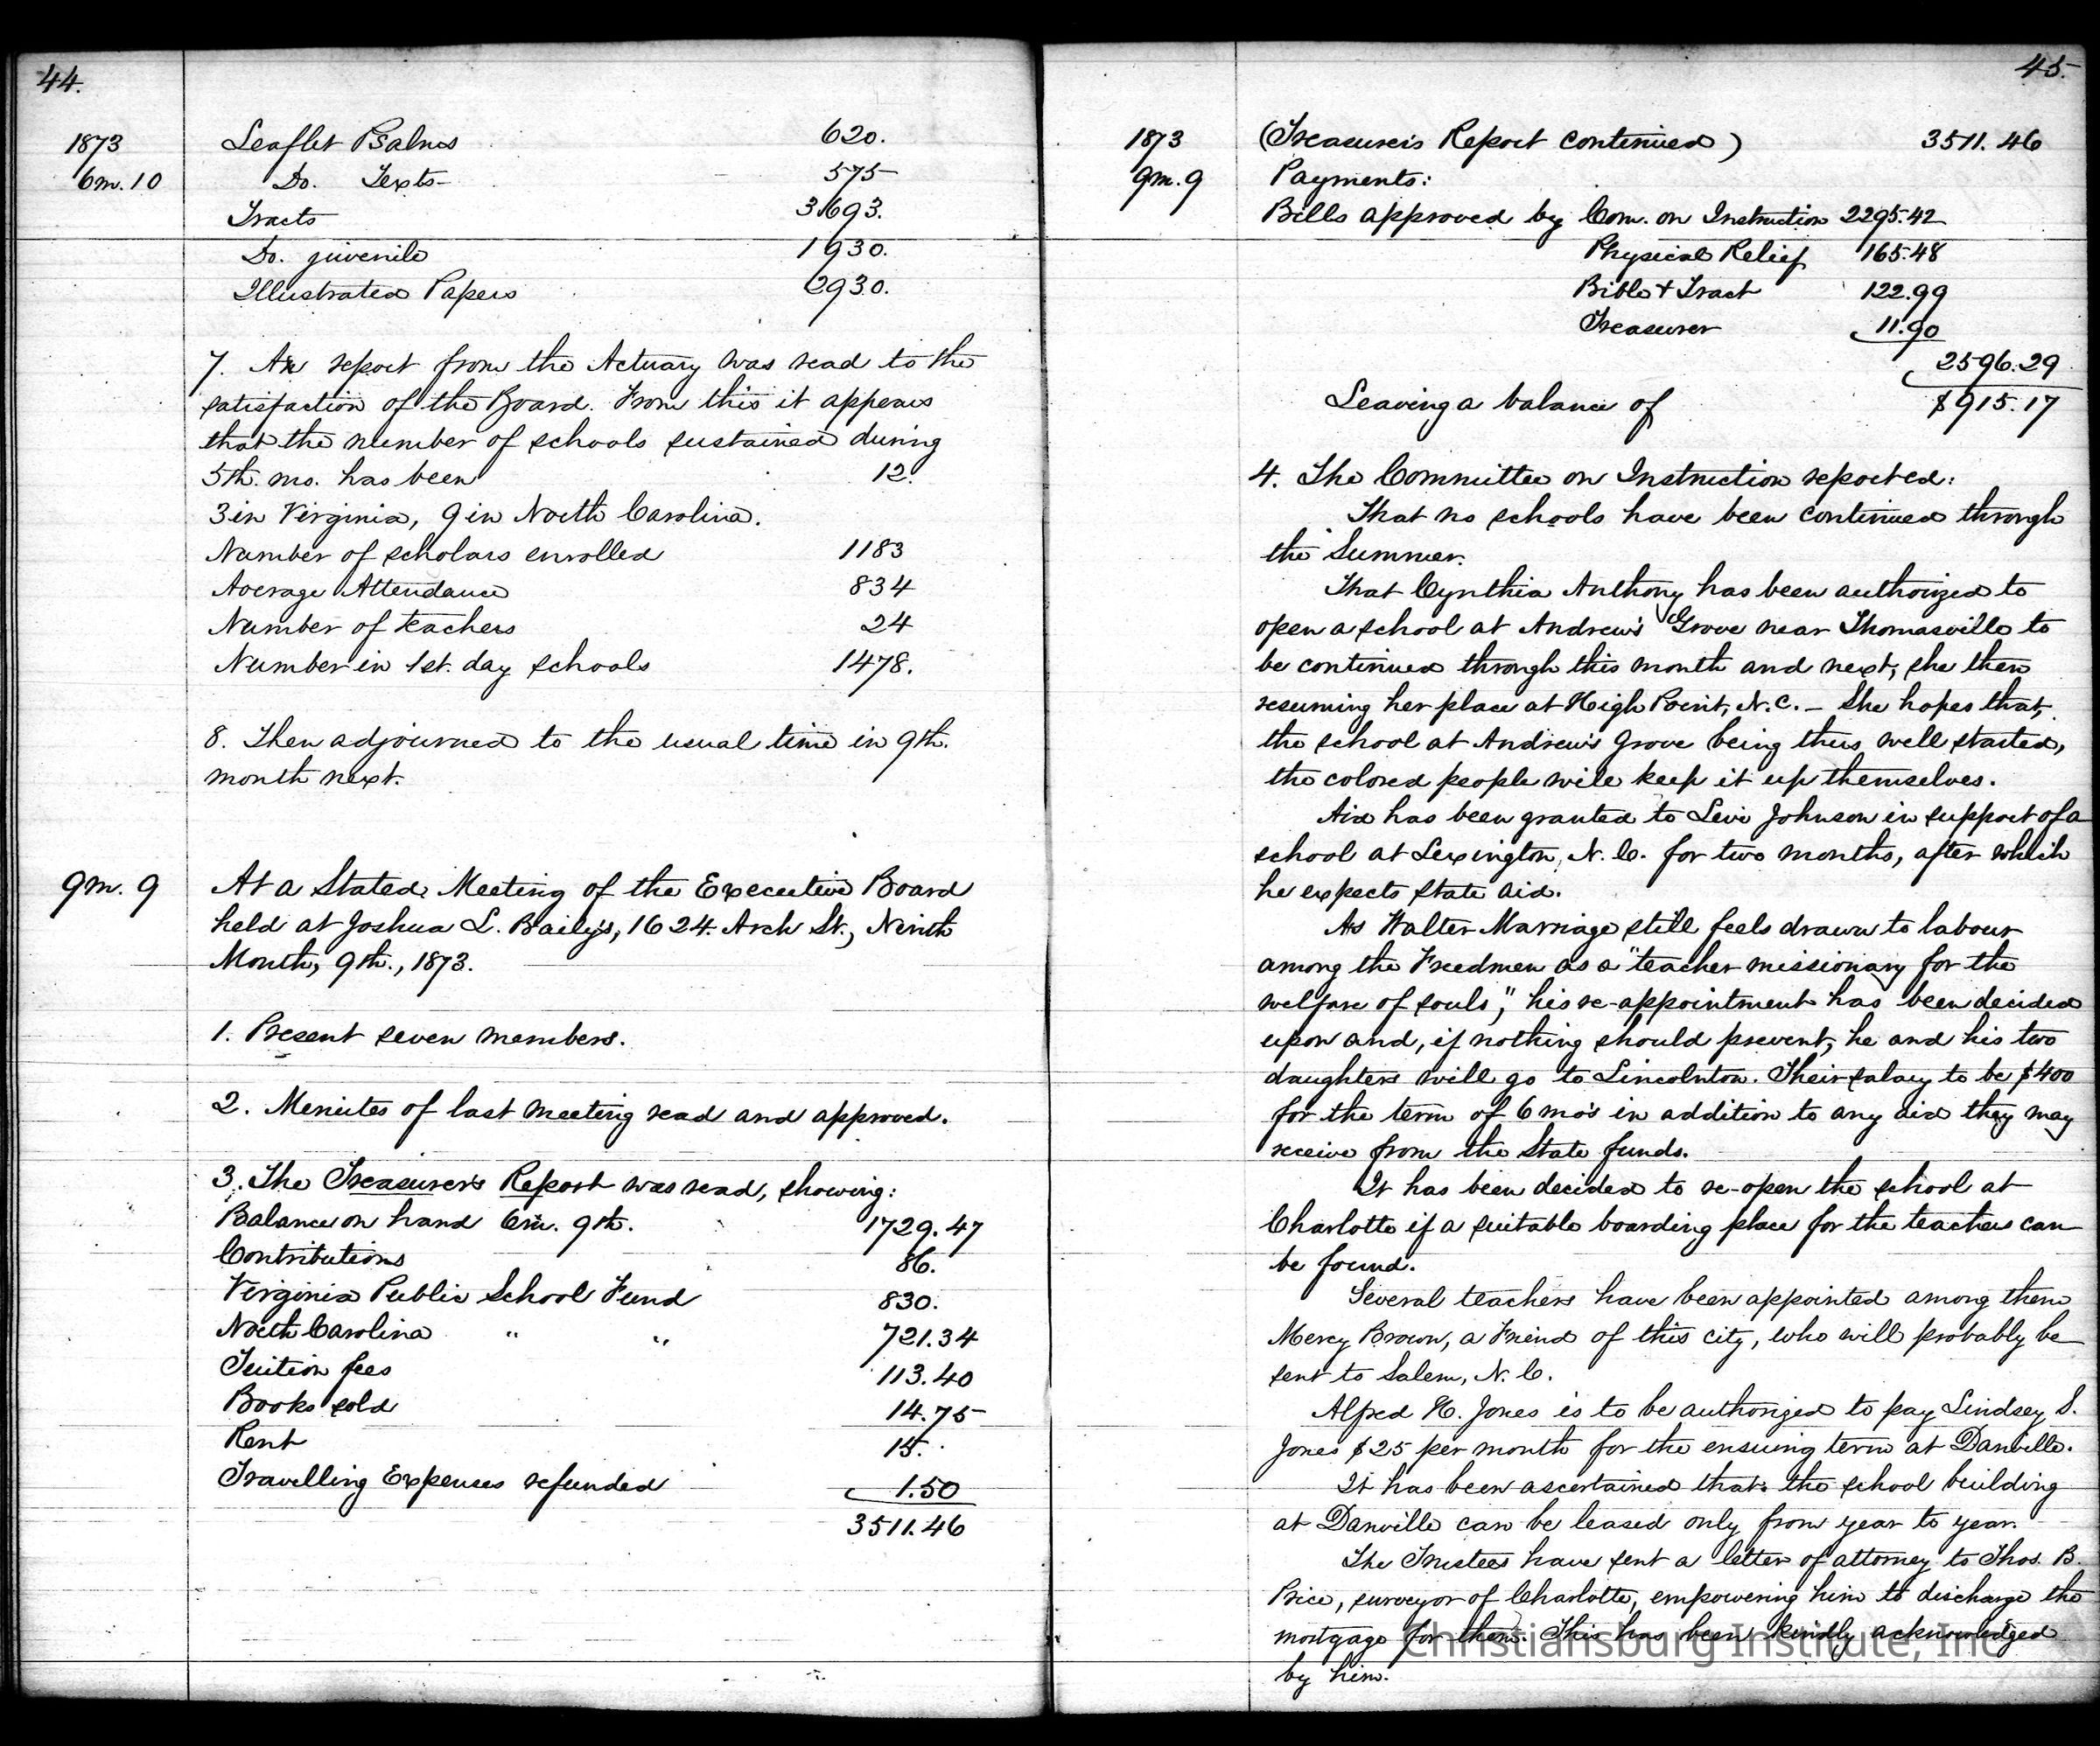 44.
1873 Leaflet Psalms 620.
6m. 10 Do. Texts 575
Tracts 3693.
Do. juvenile 1930.
Illustrated Papers 2930.
7. An report from the Actuary was read to the
satisfaction of the Board. From this it appears
that the number of schools sustained during
5th. mo. has been 12.
3 in Virginia, 9 in North Carolina.
Number of scholars enrolled 1183
Average Attendance 834
Number of teachers 24
Number in 1st. day schools 1478.
8. Then adjourned to the usual time in 9th.
month next.
9m. 9 At a Stated Meeting of the Executive Board
held at Joshua L. Baily's, 1624 Arch St., Ninth
Month, 9th., 1873.
1. Present seven members.
2. Minutes of last meeting read and approved.
3. The Treasurer's Report was read, showing:
Balance on hand 6m. 9th. 1729.47
Contributions 86.
Virginia Public School Fund 830.
North Carolina " " 721.34
Tuition fees 113.40
Books sold 14.75
Rent 15.
Travelling Expenses refunded 1.50
3511.46
45.
1873 (Treasurer's Report continued) 3511.46
9m. 9 Payments:
Bills approved by Com. on Instruction 2295.42
Physical Relief 165.48
Bible & Tract 122.99
Treasurer 11.90
2596.29
Leaving a balance of $915.17
4. The Committee on Instruction reported:
That no schools have been continued through
the Summer.
That Cynthia Anthony has been authorized to
open a school at Andrew's Grove near Thomasville to
be continued through this month and next, she then
resuming her place at High Point, N.C. - She hopes that,
the school at Andrew's Grove being thus well started,
the colored people will keep it up themselves.
Aid has been granted to Levi Johnson in support of a
school at Lexington, N.C. for two months, after which
he expects state aid.
As Walter Marriage still feels drawn to labour
among the Freedmen as a "teacher missionary for the
welfare of souls," his re-appointment has been decided
upon and, if nothing should prevent, he and his two
daughters will go to Lincolnton. Their salary to be $400
for the term of 6 mo's in addition to any aid they may
receive from the State funds.
It has been decided to re-open the school at
Charlotte if a suitable boarding place for the teachers can
be found.
Several teachers have been appointed among them
Mercy Brown, a Friend of this city, who will probably be
sent to Salem, N.C.
Alfred H. Jones is to be authorized to pay Lindsey S.
Jones $25 per month for the ensuing term at Danville.
It has been ascertained that the school building
at Danville can be leased only from year to year.
The Trustees have sent a letter of attorney to Thos. B.
Price, surveyor of Charlotte, empowering him to discharge the
mortgage for them. This has been kindly acknowledged
by him.
Christiansburg Institute, Inc